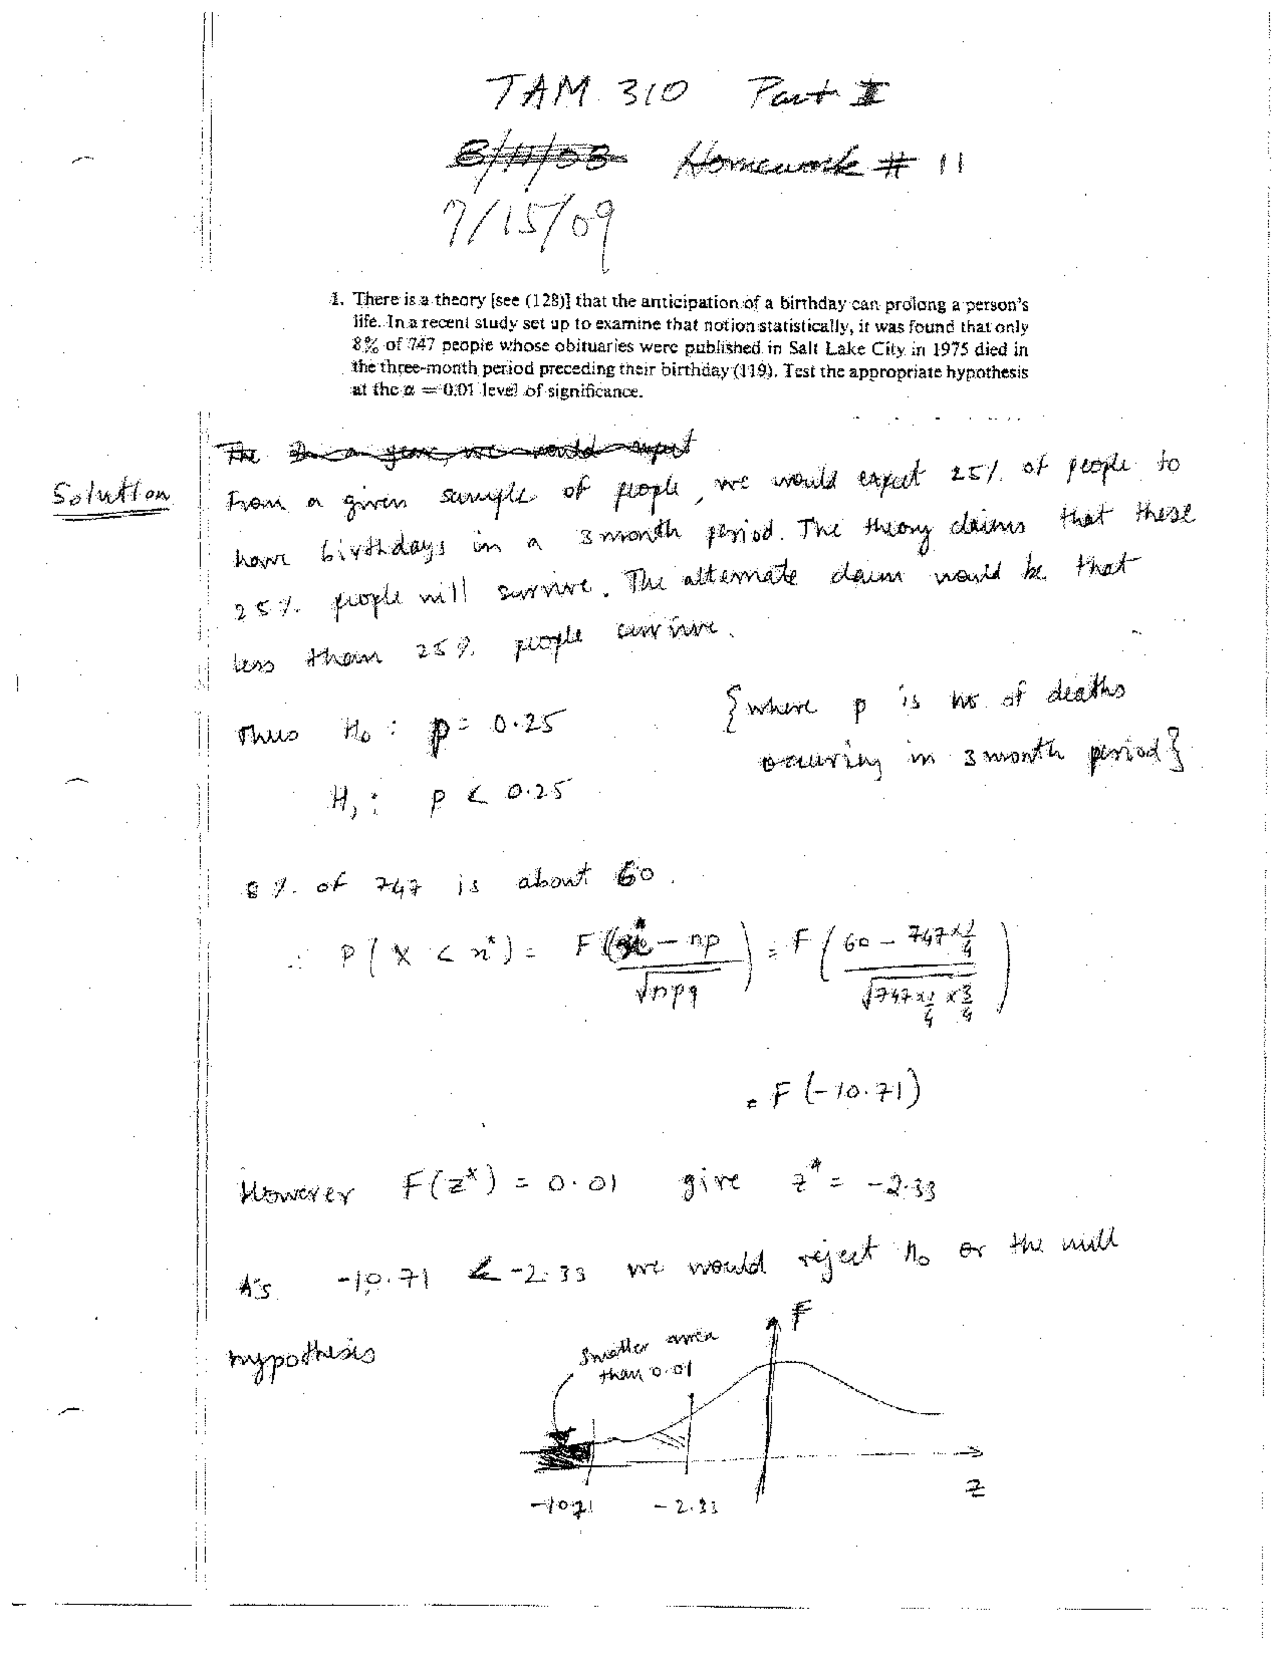 TAM 310 Part I
8/11/08 Homework # 11
7/15/09
1. There is a theory [see (128)] that the anticipation of a birthday can prolong a person's
life. In a recent study set up to examine that notion statistically, it was found that only
8% of 747 people whose obituaries were published in Salt Lake City in 1975 died in
the three-month period preceding their birthday (119). Test the appropriate hypothesis
at the α = 0.01 level of significance.
The In a year, we would expect
Solution From a given sample of people, we would expect 25% of people to
have birthdays in a 3 month period. The theory claims that these
25% people will survive. The alternate claim would be that
less than 25% people survive.
Thus H₀ : p = 0.25 {where p is no of deaths
occuring in 3 month period}
H₁ : p < 0.25
8 % of 747 is about 60.
∴ P(X < x*) = F((x* - np)/√npq) = F((60 - 747×1/4)/√(747×1/4×3/4))
= F(-10.71)
However F(z*) = 0.01 give z* = -2.33
As -10.71 < -2.33 we would reject H₀ or the null
hypothesis
F
Smaller area
than 0.01
-10.71 -2.33 Z